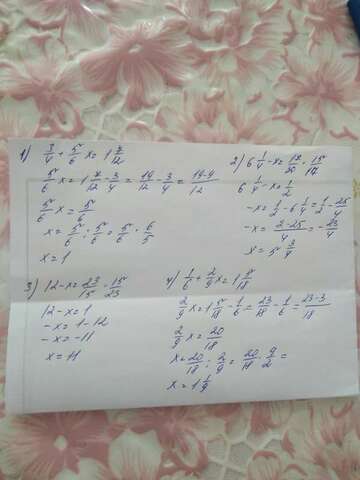 1) 3/4 + 5/6 x = 1 7/12
5/6 x = 1 7/12 - 3/4 = 19/12 - 3/4 = 19-9/12
5/6 x = 5/6
x = 5/6 : 5/6 = 5/6 · 6/5
x = 1
2) 6 1/4 - x = 17/20 · 15/17
6 1/4 - x = 1/2
-x = 1/2 - 6 1/4 = 1/2 - 25/4
-x = 2-25/4 = -23/4
x = 5 3/4
3) 12 - x = 23/15 · 15/23
12 - x = 1
-x = 1 - 12
-x = -11
x = 11
4) 1/6 + 2/9 x = 1 5/18
2/9 x = 1 5/18 - 1/6 = 23/18 - 1/6 = 23-3/18
2/9 x = 20/18
x = 20/18 : 2/9 = 20/18 · 9/2 =